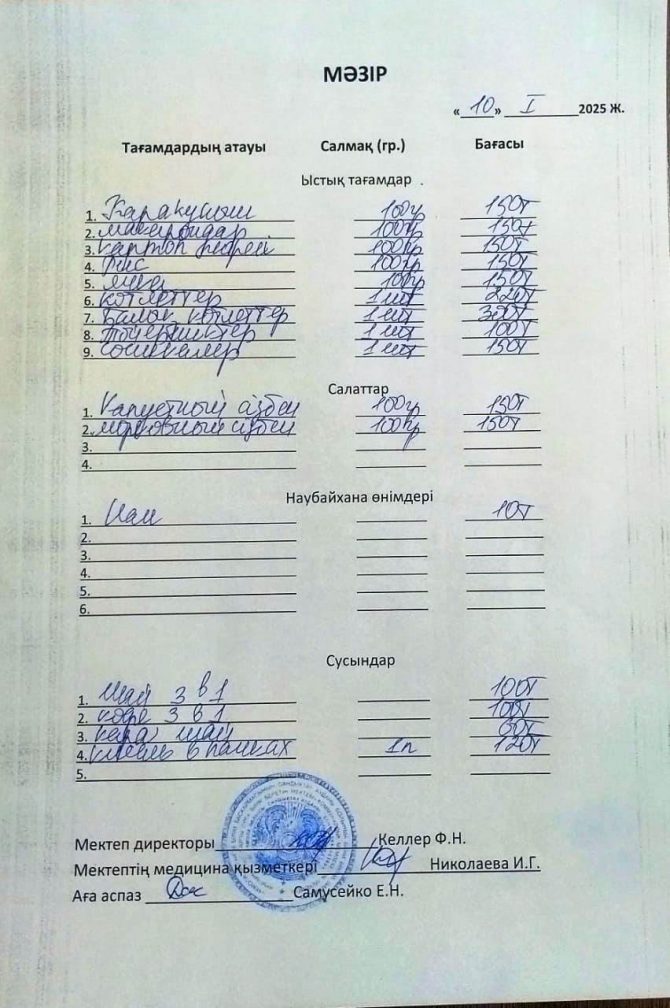 МӘЗІР
« 10 » I 2025 Ж.
Тағамдардың атауы Салмақ (гр.) Бағасы
Ыстық тағамдар
1. Каракуныш 100гр 150т
2. макарондар 100гр 150т
3. картоп пюрей 100гр 150т
4. рис 100гр 150т
5. 100гр 150т
6. котлеттер 1 шт 220т
7. балык котлеттер 1 шт 300т
8. 1 шт 100т
9. сосискалер 1 шт 150т
Салаттар
1. Капустный сізбен 100гр 150т
2. морковный сізбен 100гр 150т
3.
4.
Наубайхана өнімдері
1. Нан 10т
2.
3.
4.
5.
6.
Сусындар
1. Шай 3 в 1 100т
2. кофе 3 в 1 100т
3. кара шай 60т
4. кисель в пачках 1п 120т
5.
Мектеп директоры Келлер Ф.Н.
Мектептің медицина қызметкері Николаева И.Г.
Аға аспаз Самусейко Е.Н.